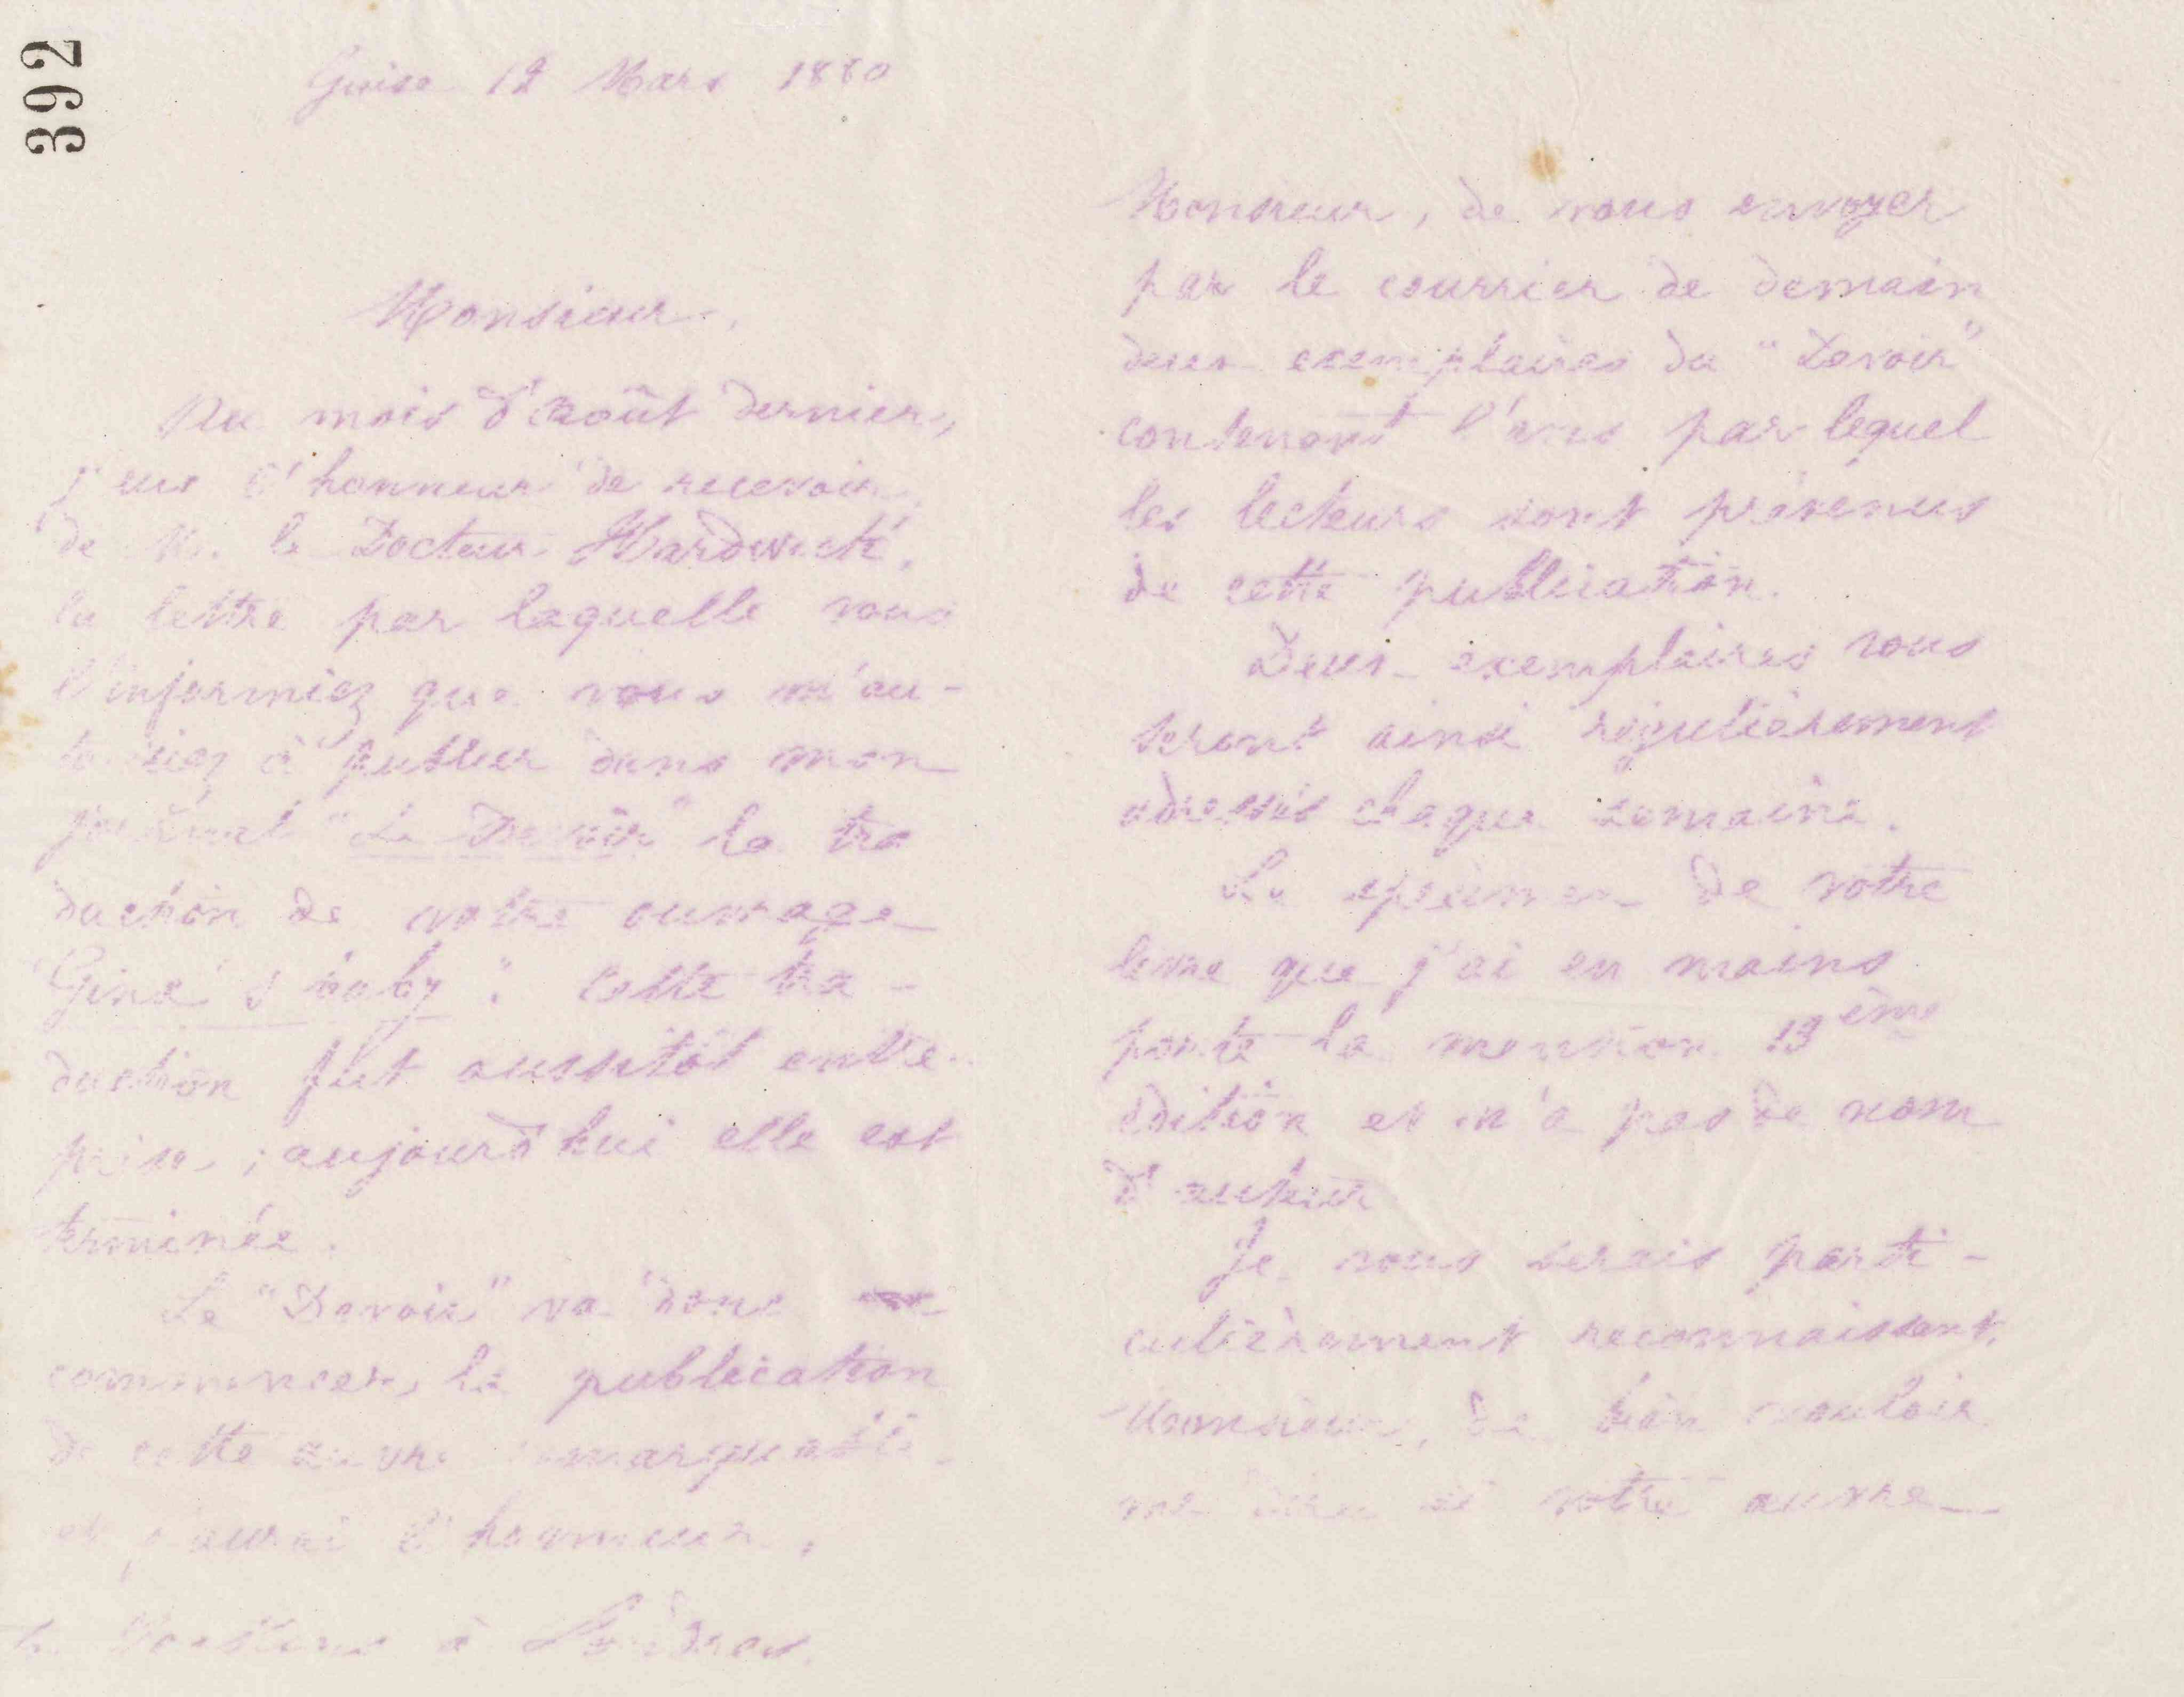 392
Guise 12 Mars 1880
Monsieur,
Au mois d'août dernier,
j'eus l'honneur de recevoir
de M. le Docteur Hardwick,
la lettre par laquelle vous
l'informiez que vous m'au-
torisiez à publier dans mon
journal "Le Devoir" la tra
duction de votre ouvrage
"Ginx's baby". Cette tra-
duction fut aussitôt entre-
prise ; aujourd'hui elle est
terminée.
Le "Devoir" va donc
commencer la publication
de cette œuvre remarquable
et j'aurai l'honneur,
à Londres
Monsieur, de vous envoyer
par le courrier de demain
deux exemplaires du "Devoir"
contenant l'avis par lequel
les lecteurs sont prévenus
de cette publication.
Deux exemplaires vous
seront ainsi régulièrement
adressés chaque semaine.
Le spécimen de votre
livre que j'ai en mains
porte la mention 19ème
édition et n'a pas de nom
d'auteur
Je vous serais parti-
culièrement reconnaissant,
Monsieur, de bien vouloir
me dire si votre œuvre